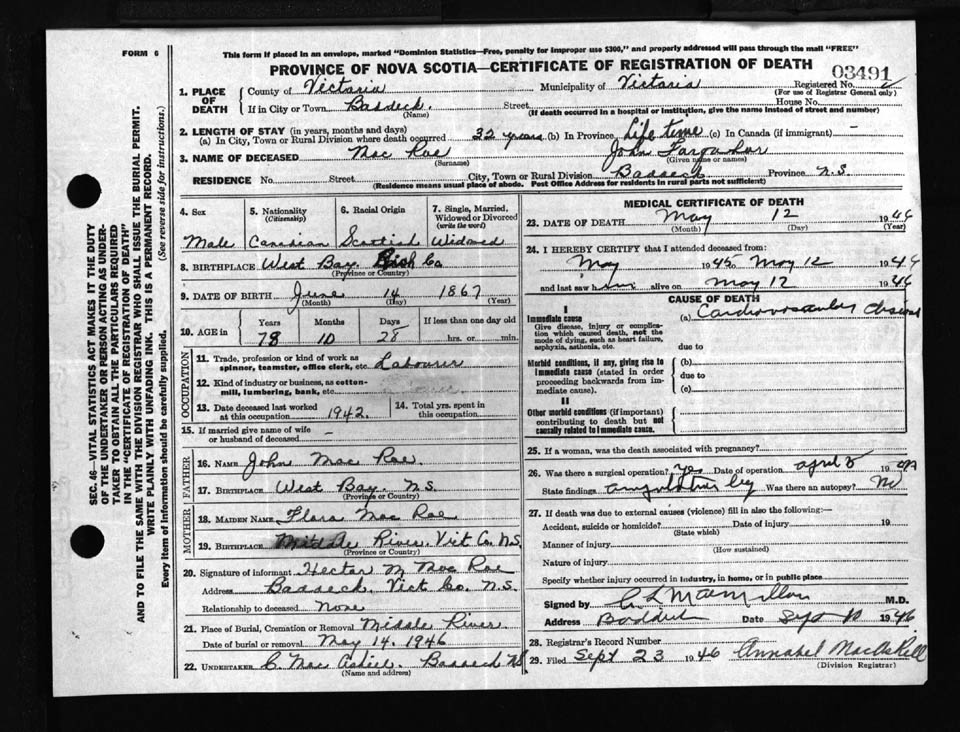 FORM 6
This form if placed in an envelope, marked "Dominion Statistics—Free, penalty for improper use $300," and properly addressed will pass through the mail "FREE"
PROVINCE OF NOVA SCOTIA—CERTIFICATE OF REGISTRATION OF DEATH
03491
1. PLACE OF DEATH
County of Victoria Municipality of Victoria Registered No.
(For use of Registrar General only)
If in City or Town Baddeck. Street House No.
(Name) (If death occurred in a hospital or institution, give the name instead of street and number)
2. LENGTH OF STAY (in years, months and days)
(a) In City, Town or Rural Division where death occurred 32 years (b) In Province Life time (c) In Canada (if immigrant) —
3. NAME OF DECEASED Mac Rae John Farquhar
(Surname) (Given name or names)
RESIDENCE No. Street City, Town or Rural Division Baddeck Province N.S.
(Residence means usual place of abode. Post Office Address for residents in rural parts not sufficient)
4. Sex
Male
5. Nationality
(Citizenship)
Canadian
6. Racial Origin
Scottish
7. Single, Married, Widowed or Divorced
(write the word)
Widowed
8. BIRTHPLACE West Bay Co
(Province or Country)
9. DATE OF BIRTH June 14 1867
(Month) (Day) (Year)
10. AGE in
Years Months Days If less than one day old
78 10 28 hrs. or min.
OCCUPATION
11. Trade, profession or kind of work as spinner, teamster, office clerk, etc. Labourer
12. Kind of industry or business, as cotton-mill, lumbering, bank, etc.
13. Date deceased last worked at this occupation 1942.
14. Total yrs. spent in this occupation.
15. If married give name of wife or husband of deceased —
FATHER
16. NAME John Mac Rae.
17. BIRTHPLACE West Bay N.S.
(Province or Country)
MOTHER
18. MAIDEN NAME Flora Mac Rae
19. BIRTHPLACE Middle River. Vict Co. N.S.
(Province or Country)
20. Signature of informant Hector M Mac Rae
Address Baddeck. Vict Co. N.S.
Relationship to deceased None
21. Place of Burial, Cremation or Removal Middle River.
Date of burial or removal May 14. 1946
22. UNDERTAKER C. Mac Askill. Baddeck NS
(Name and address)
MEDICAL CERTIFICATE OF DEATH
23. DATE OF DEATH May 12 1946
(Month) (Day) (Year)
24. I HEREBY CERTIFY that I attended deceased from:
May 1945 May 12 1946
and last saw him alive on May 12 1946
CAUSE OF DEATH
I
Immediate cause (a) Cardiovascular disease
Give disease, injury or complication which caused death, not the mode of dying, such as heart failure, asphyxia, asthenia, etc.
due to
Morbid conditions, if any, giving rise to immediate cause (stated in order proceeding backwards from immediate cause).
(b)
due to
(c)
II
Other morbid conditions (if important) contributing to death but not causally related to immediate cause.
25. If a woman, was the death associated with pregnancy?
26. Was there a surgical operation? Yes Date of operation April 5 19
State findings leg Was there an autopsy? No
27. If death was due to external causes (violence) fill in also the following:—
Accident, suicide or homicide? Date of injury 19
(State which)
Manner of injury
(How sustained)
Nature of injury
Specify whether injury occurred in industry, in home, or in public place
Signed by C L MacMillan M.D.
Address Baddeck Date Sept 10 1946
28. Registrar's Record Number
29. Filed Sept 23 1946 Annabel MacAskill
(Division Registrar)
SEC. 46—VITAL STATISTICS ACT MAKES IT THE DUTY
OF THE UNDERTAKER OR PERSON ACTING AS UNDER-
TAKER TO OBTAIN ALL THE PARTICULARS REQUIRED
IN THE "CERTIFICATE OF REGISTRATION OF DEATH"
AND TO FILE THE SAME WITH THE DIVISION REGISTRAR WHO SHALL ISSUE THE BURIAL PERMIT.
WRITE PLAINLY WITH UNFADING INK. THIS IS A PERMANENT RECORD.
Every item of information should be carefully supplied. (See reverse side for instructions.)